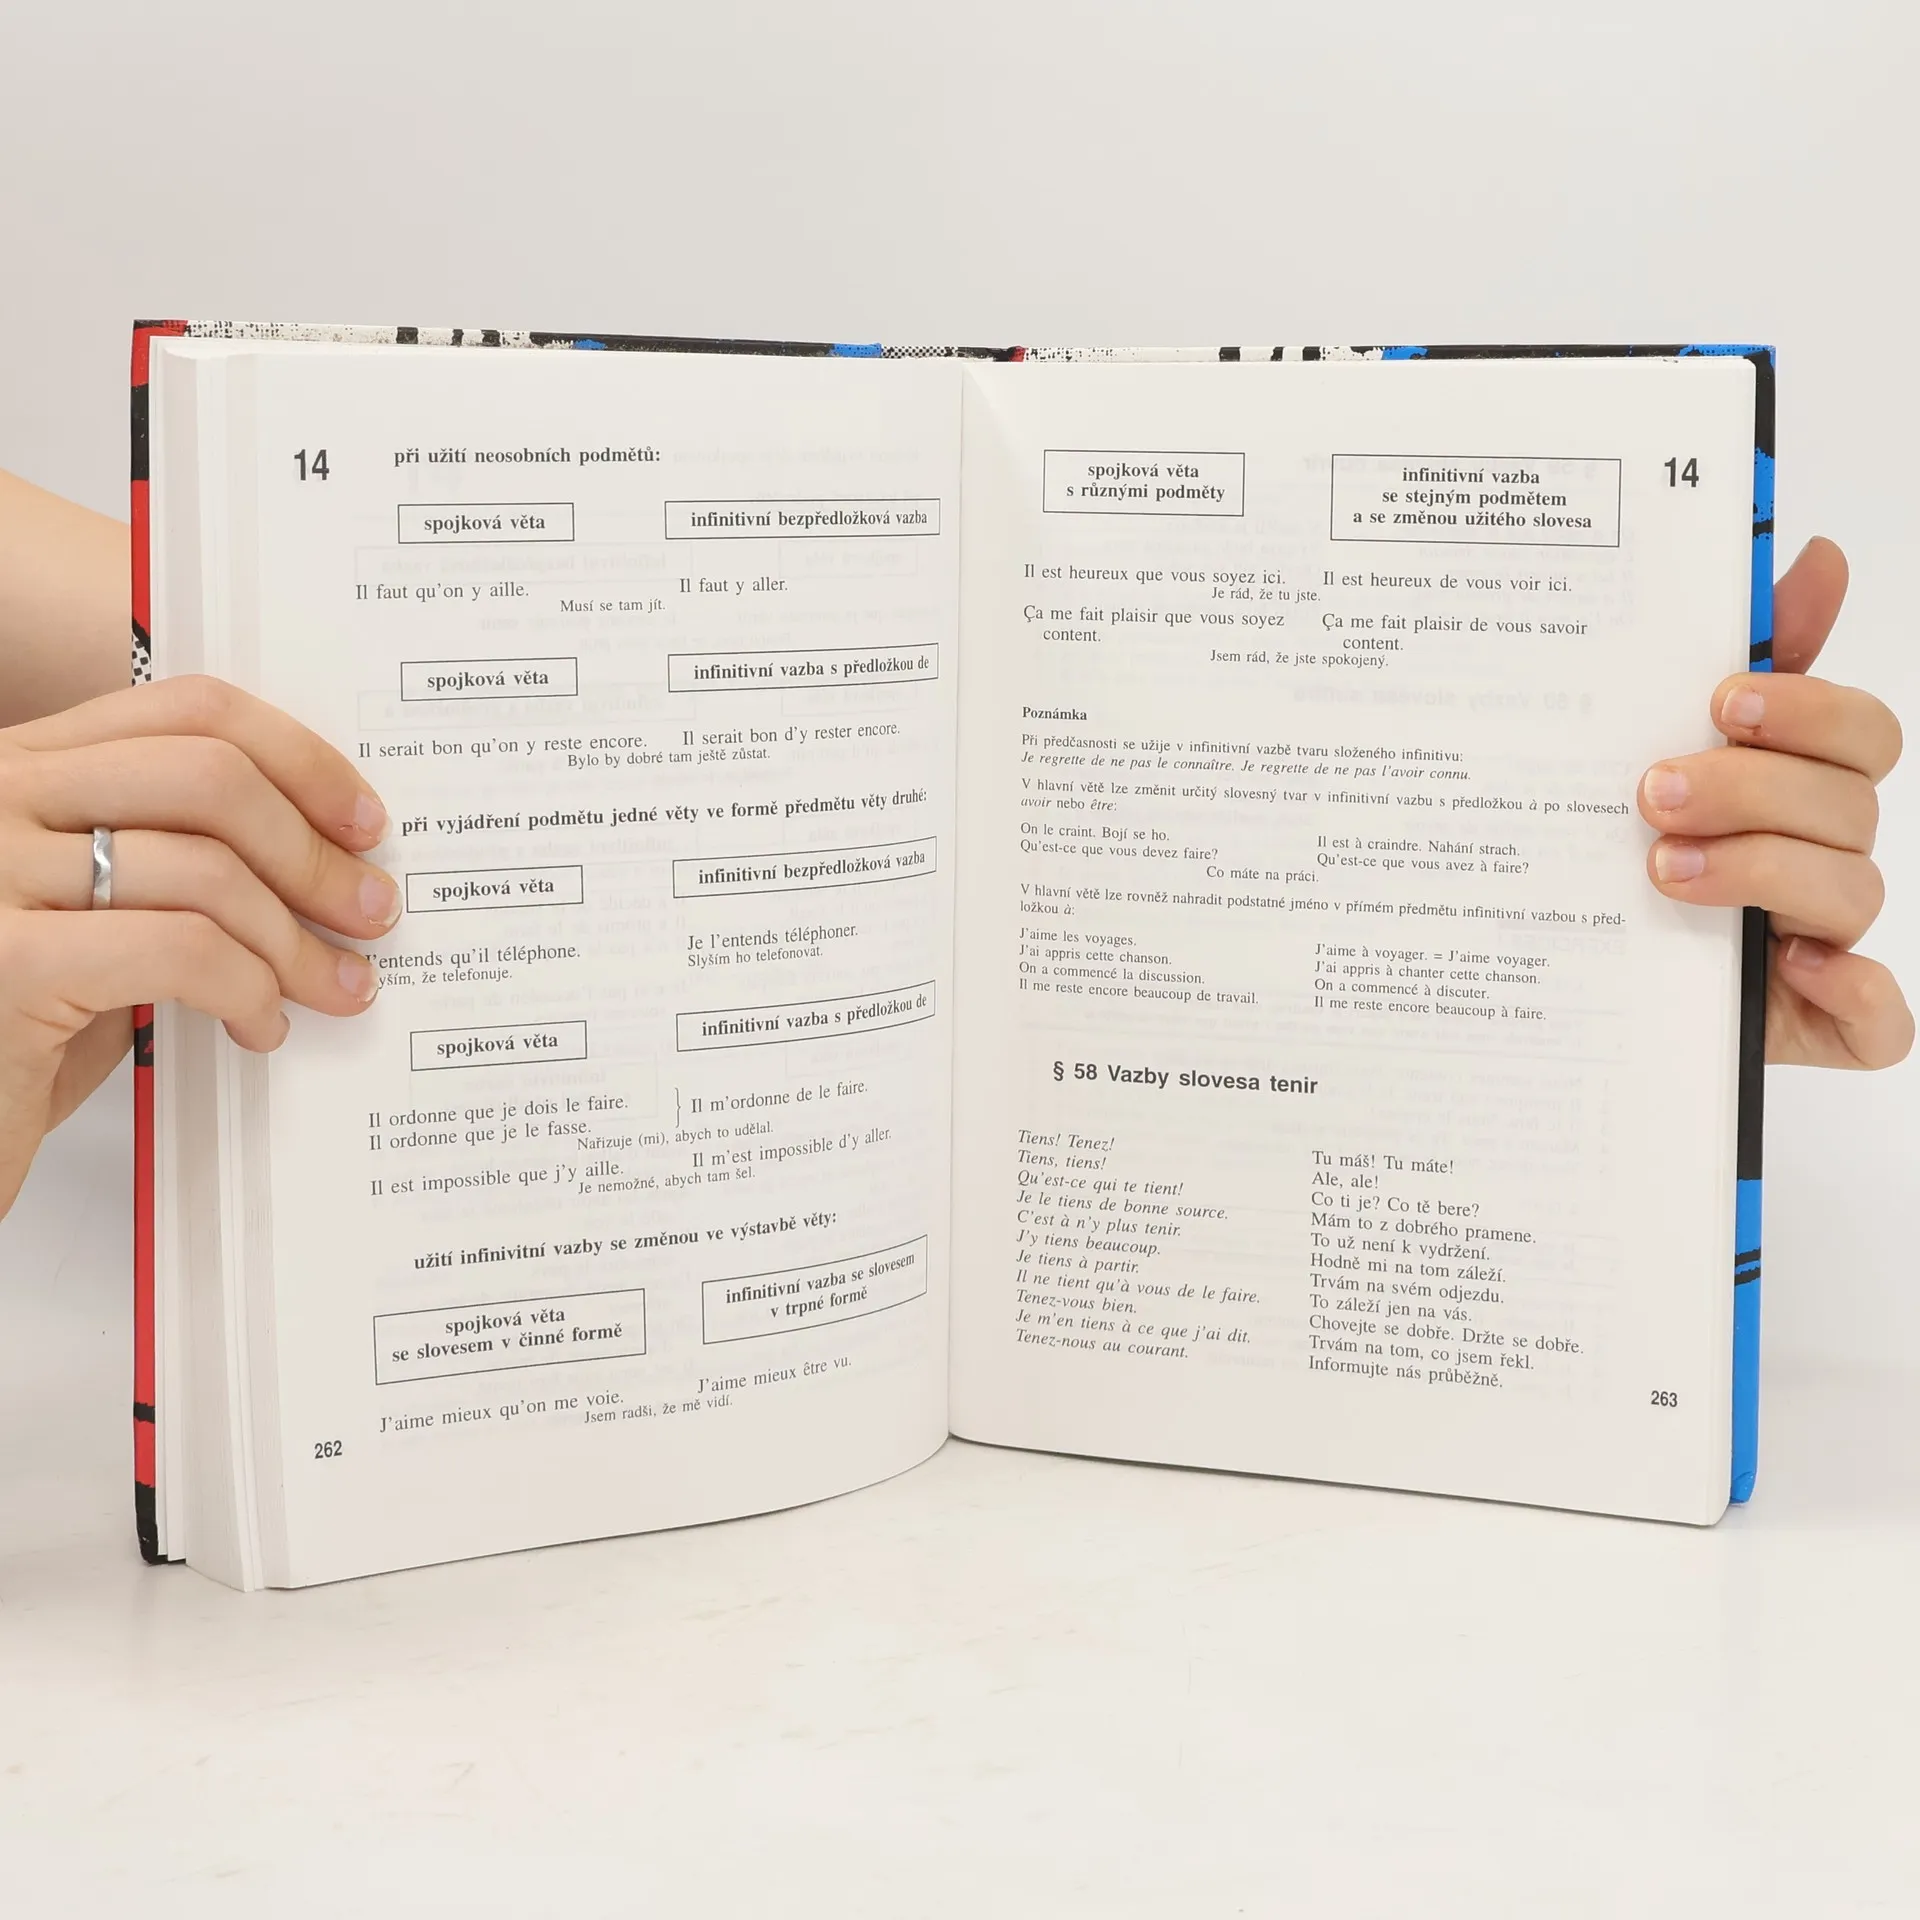 14
při užití neosobních podmětů:
spojková věta
infinitivní bezpředložková vazba
Il faut qu'on y aille.
Il faut y aller.
Musí se tam jít.
spojková věta
infinitivní vazba s předložkou de
Il serait bon qu'on y reste encore.
Il serait bon d'y rester encore.
Bylo by dobré tam ještě zůstat.
při vyjádření podmětu jedné věty ve formě předmětu věty druhé:
spojková věta
infinitivní bezpředložková vazba
J'entends qu'il téléphone.
Je l'entends téléphoner.
yším, že telefonuje.
Slyším ho telefonovat.
spojková věta
infinitivní vazba s předložkou de
Il ordonne que je dois le faire.
Il ordonne que je le fasse.
Il m'ordonne de le faire.
Nařizuje (mi), abych to udělal.
Il est impossible que j'y aille.
Il m'est impossible d'y aller.
Je nemožné, abych tam šel.
užití infinivitní vazby se změnou ve výstavbě věty:
spojková věta
se slovesem v činné formě
infinitivní vazba se slovesem
v trpné formě
J'aime mieux qu'on me voie.
J'aime mieux être vu.
Jsem radši, že mě vidí.
262
14
spojková věta
s různými podměty
infinitivní vazba
se stejným podmětem
a se změnou užitého slovesa
Il est heureux que vous soyez ici.
Il est heureux de vous voir ici.
Je rád, že tu jste.
Ça me fait plaisir que vous soyez
content.
Ça me fait plaisir de vous savoir
content.
Jsem rád, že jste spokojený.
Poznámka
Při předčasnosti se užije v infinitivní vazbě tvaru složeného infinitivu:
Je regrette de ne pas le connaître. Je regrette de ne pas l'avoir connu.
V hlavní větě lze změnit určitý slovesný tvar v infinitivní vazbu s předložkou à po slovesech
avoir nebo être:
On le craint. Bojí se ho.
Il est à craindre. Nahání strach.
Qu'est-ce que vous devez faire?
Qu'est-ce que vous avez à faire?
Co máte na práci.
V hlavní větě lze rovněž nahradit podstatné jméno v přímém předmětu infinitivní vazbou s před-
ložkou à:
J'aime les voyages.
J'aime à voyager. = J'aime voyager.
J'ai appris cette chanson.
J'ai appris à chanter cette chanson.
On a commencé la discussion.
On a commencé à discuter.
Il me reste encore beaucoup de travail.
Il me reste encore beaucoup à faire.
§ 58 Vazby slovesa tenir
Tiens! Tenez!
Tu máš! Tu máte!
Tiens, tiens!
Ale, ale!
Qu'est-ce qui te tient!
Co ti je? Co tě bere?
Je le tiens de bonne source.
Mám to z dobrého pramene.
C'est à n'y plus tenir.
To už není k vydržení.
J'y tiens beaucoup.
Hodně mi na tom záleží.
Je tiens à partir.
Trvám na svém odjezdu.
Il ne tient qu'à vous de le faire.
To záleží jen na vás.
Tenez-vous bien.
Chovejte se dobře. Držte se dobře.
Je m'en tiens à ce que j'ai dit.
Trvám na tom, co jsem řekl.
Tenez-nous au courant.
Informujte nás průběžně.
263